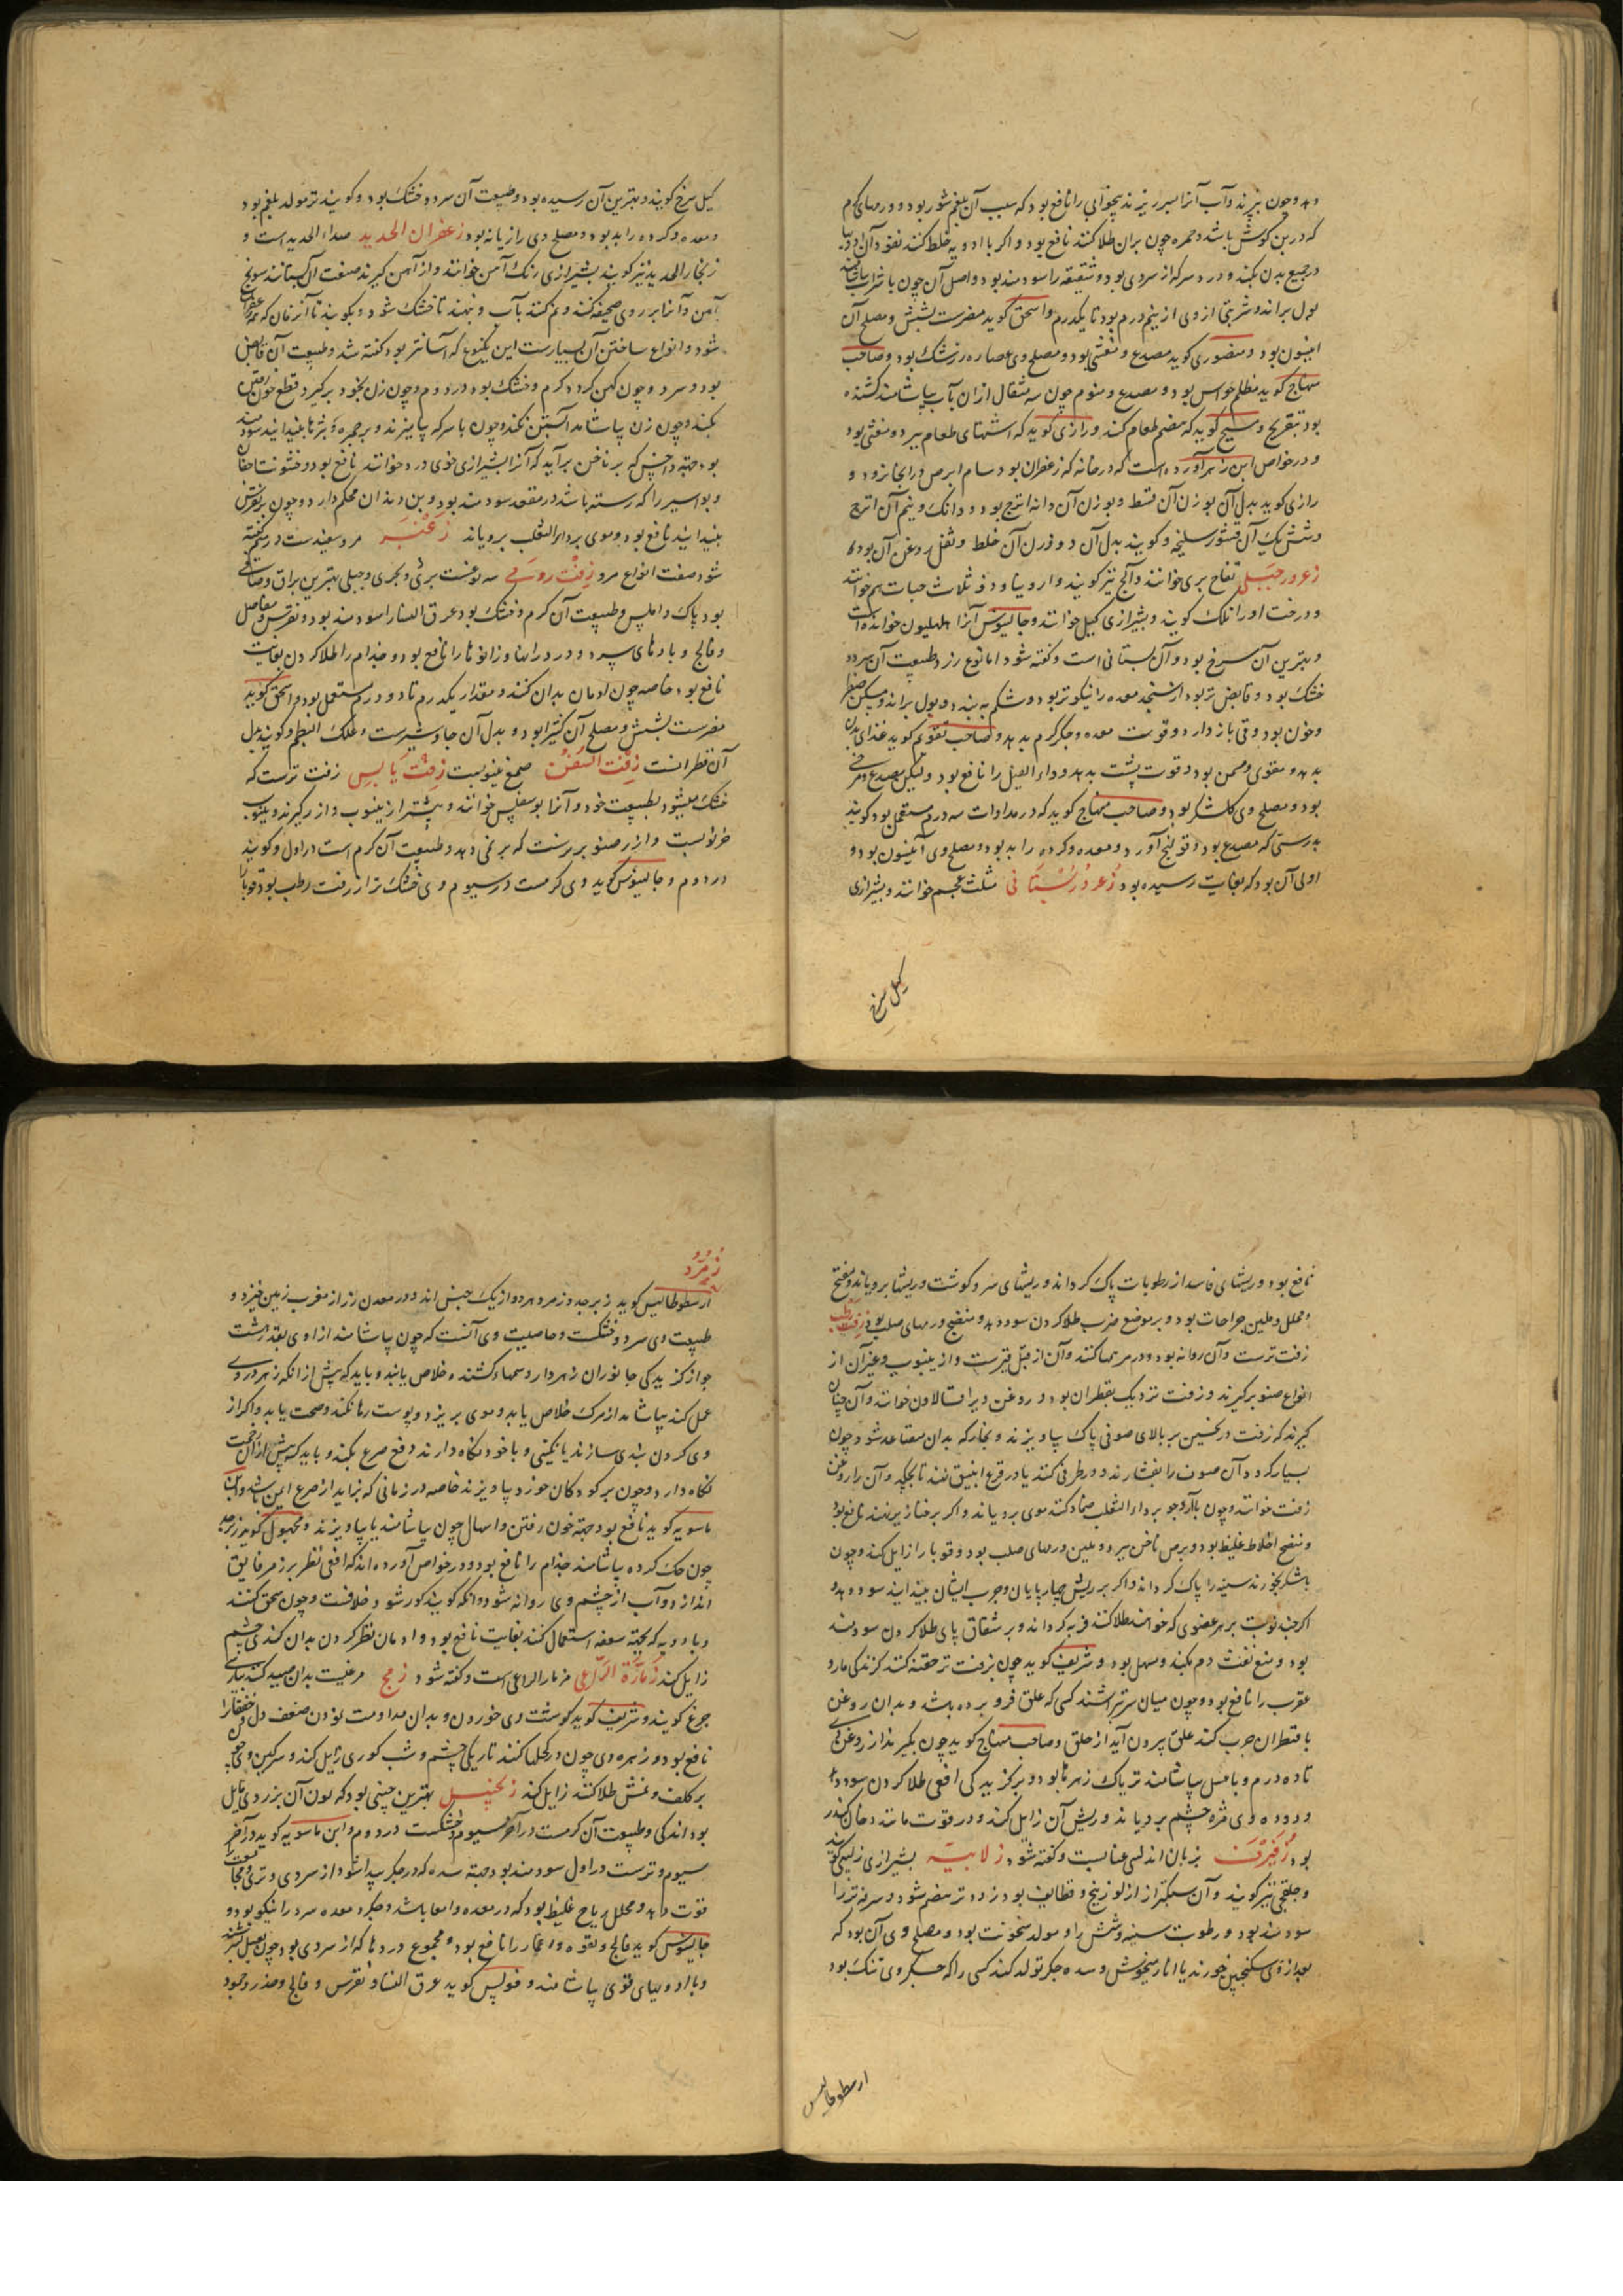 دهد و چون بپزند و آب آنرا بر سر ریزند بیخوابی را نافع بود که سبب آن بلغم شور بود و ورمهای گرم
که در بن گوش باشد و حمره چون بران طلا کنند نافع بود و اگر با ادویه خلط کنند نفوذ آن ادویها
در جمیع بدن بکند و درد سر که از سردی بود و شقیقه را سودمند بود و اصل آن چون با شراب بیاشامند
بول براند و شربتی از وی از نیم درم بود تا یکدرم و اسحق گوید مضرست بشش و مصلح آن
انیسون بود و منصوری گوید مصدع و مغثی بود و مصلح وی عصاره زرشک بود و صاحب
منهاج گوید مظلم حواس بود و مصدع و منوم چون سه مثقال ازان بآب بیاشامند کشنده
بود بتفریح و مسیح گوید که هضم طعام کند و رازی گوید که اشتهای طعام ببرد و مغثی بود
و در خواص ابن زهر آورده است که در خانه که زعفران بود سام ابرص درانجا نرود و
رازی گوید بدل آن بوزن آن قسط و بوزن آن دانه اترج بود و دانک و نیم آن اترج
و شش یک آن قشور سلیخه و گویند بدل آن دو وزن آن خلط و ثفل روغن آن بود
زعرور جبلی تفاح بری خوانند و آلج نیز گویند و اروینا و ذو ثلاث حبات هم خوانند
و درخت اورا نلک گویند و بشیرازی کیل خوانند و جالینوس آنرا طلیون خوانده است
و بهترین آن سرخ بود و آن بستانی است و گفته شود اما نوع زرد طبیعت آن سرد و
خشک بود و قابض تر بود از سنجد معده را نیکوتر بود و شکم به بندد و بول براند و مسکن صفرا
و خون بود و قی باز دارد و قوت معده و جگر گرم بدهد و صاحب تقویم گوید غذای بدن
بدهد و مقوی و مسمن بود و قوت پشت بدهد و داء الفیل را نافع بود ولیکن مصدع و مرخی
بود و مصلح وی گلشکر بود و صاحب منهاج گوید که در مداوات سه درم مستعمل بود گویند
بدرستی که مصدع بود و قولنج آورد و معده و گرده را بد بود و مصلح وی انیسون بود و
اولی آن بود که بغایت رسیده بود زعرور بستانی مثلث عجم خوانند و بشیرازی
کیل سرخ
کیل سرخ گویند و بهترین آن رسیده بود و طبیعت آن سرد و خشک بود و گویند تر مولد بلغم بود
و معده و گرده را بد بود و مصلح وی رازیانه بود زعفران الحدید صداء الحدید است و
زنجار الحدید نیز گویند بشیرازی زنگ آهن خوانند و از آهن گیرند صفت آن بستانند سونج
آهن و آنرا بر روی صحیفه کنند و نم کنند بآب و بنهند تا خشک شود و بکوبند تا آنزمان که همه زعفران
شود و انواع ساختن آن بسیارست این یکنوع که آسانتر بود گفته شد و طبیعت آن قابض
بود و سرد و چون کهن گردد گرم و خشک بود در دوم و چون زن بخود برگیرد قطع خون رفتن
بکند و چون زن بیاشامد آبستن نکند و چون با سرکه بیامیزند و بر حمره و بثرها بیندایند سودمند
بود جهته داحس که بر ناخن برآید که آنرا بشیرازی خوی درد خوانند نافع بود و خشونت اجفان
و بواسیر را که رسته باشد در مقعد سودمند بود و بن دندان محکم دارد و چون بر نقرس
بیندایند نافع بود و موی بر داء الثعلب برویاند زعنبر مرو سفیدست در میم گفته
شود صفت انواع مرو زفت رومی سه نوعست بری و بحری و جبلی بهترین براق و صافی
بود پاک و املس و طبیعت آن گرم و خشک بود عرق النسا را سودمند بود و نقرس و مفاصل
و فالج و بادهای سرد و درد رانها و زانوها را نافع بود و جذام را طلا کردن بغایت
نافع بود خاصه چون ادمان بدان کنند و مقدار یکدرم تا دو درم مستعمل بود و اسحق گوید
مضرست بشش و مصلح آن کتیرا بود و بدل آن جاوشیرست و علک البطم و گویند بدل
آن قطرانست زفت السفن صمغ ینبوبست زفت یابس زفت ترست که
خشک میشود بطبیعت خود و آنرا بوسفلس خوانند و بیشتر از ینبوب و ارز گیرند و ینبوب
خرنوبست و ارز صنوبریست که بر نمی دهد و طبیعت آن گرم است در اول و گویند
در دوم و جالینوس گوید وی گرمست در سیوم و وی خشک تر از زفت رطب بود قوبا را
نافع بود و ریشهای فاسد از رطوبات پاک گرداند و ریشهای سر و گوشت و ریشها برویاند و منضج
و محلل و ملین جراحات بود و بر موضع ضرب طلا کردن سود دهد و منضج ورمهای صلب بود زفت رطب
زفت ترست و آن روانه بود و در مرهمها کنند و آن از قبل قیرست و از ینبوب و غیر آن از
انواع صنوبر گیرند و زفت نزدیک بقطران بود و روغن ویرا فسالاون خوانند و آن چنان
گیرند که زفت در نخستین بر بالای صوفی پاک بیاویزند و بخار که بدان متصاعد شود چون
بسیار گردد آن صوف را بفشارند در ظرفی کنند یا در قرع انبیق نهند تا بچکد و آن را روغن
زفت خوانند و چون با آرد جو بر داء الثعلب ضماد کنند موی برویاند و اگر بر خنازیر نهند نافع بود
و منضج اخلاط غلیظ بود و برص ناخن ببرد و ملین ورمهای صلب بود و قوبا را زایل کند و چون
با شکر بخورند سینه را پاک گرداند و اگر بر ریش چهارپایان و جرب ایشان بیندایند سود دهد و
اگر چند نوبت بر هر عضوی که خواهند طلا کنند فربه گرداند و بر شقاق پای طلا کردن سودمند
بود و منع نفث دم بکند و مسهل بود و شریف گوید چون بزفت تر حقنه کنند گزندگی مار و
عقرب را نافع بود و چون میان سر بتراشند کسی که علق فرو برده باشد و بدان روغن
یا قطران چرب کند علق بیرون آید از حلق و صاحب منهاج گوید چون بگیرند از روغن وی
تا ده درم و با عسل بیاشامند تریاک زهرها بود و بر گزیدگی افعی طلا کردن سود دهد
و دوده وی مژه چشم برویاند و ریش آن زایل کند و در قوت مانند دخان کندر
بود زفیزف بزبان اندلسی عنابست و گفته شود زلابیه بشیرازی زلیبی گویند
و حلقچی نیز گویند و آن سبکتر از از لوزینج و قطایف بود زودتر هضم شود و سرفه تر را
سودمند بود و رطوبت سینه و شش را و مولد سخونت بود و مصلح وی آن بود که
بعد از وی سکنجبین خورند یا انار میخوش و سده جگر تولد کند کسی را که جگر وی تنگ بود
ارسطوطالیس
زمرد
ارسطوطالیس گوید زبرجد و زمرد هر دو از یک جنس اند و در معدن زر از مغرب زمین خیزد و
طبیعت وی سرد و خشکست و خاصیت وی آنست که چون بیاشامند از وی بقدر هشت
جو از گزیدگی جانوران زهردار و سمهاء کشنده خلاص یابند و باید که پیش از انکه زهر در وی
عمل کند بیاشامد از مرگ خلاص یابد و موی بریزد و پوست رها نکند و صحت یابد و اگر از
وی گردن بندی سازند یا نگینی و با خود نگاه دارند دفع صرع بکند و باید که پیش از آن زحمت
نگاه دارد و چون بر کودکان خورد بیاویزند خاصه در زمانی که بزاید از صرع ایمن باشد و ابن
ماسویه گوید نافع بود جهته خون رفتن و اسهال چون بیاشامند یا بیاویزند و مجهول گوید زبرجد
چون حک کرده بیاشامند جذام را نافع بود و در خواص آورده اند که افعی نظر بر زمرد فایق
اندازد و آب از چشم وی روانه شود و آنکه گویند کور شود خلافست و چون سحق کنند
و با ادویه که بجهته سعفه استعمال کنند بغایت نافع بود و ادمان نظر کردن بدان کندی چشم
زایل کند زمارة الراعی مزمار الراعی است و گفته شود زمج مرغیست بدان صید کنند بپارسی
جرغ گویند و شریف گوید گوشت وی خوردن و بدان مداومت نمودن ضعف دل و خفقان را
نافع بود و زهره وی چون در کحلها کنند تاریکی چشم و شب کوری زایل کند و سرگین وی چون
بر کلف و نمش طلا کنند زایل کند زنجبیل بهترین چینی بود که لون آن بزردی مایل
بود اندکی و طبیعت آن گرمست در آخر سیوم و خشکست در دوم و ابن ماسویه گوید در آخر
سیوم و ترست در اول سودمند بود جهته سده که در جگر پیدا شود از سردی و تری و مجامعت
قوت دهد و محلل ریاح غلیظ بود که در معده و امعا باشد و جگر و معده سرد را نیکو بود و
جالینوس گوید فالج و لقوه و خمار را نافع بود و مجموع دردها که از سردی بود چون بعسل بسرشند
و با ادویهای قوی بیاشامند و فولس گوید عرق النسا و نقرس و فالج و خدر و جمود